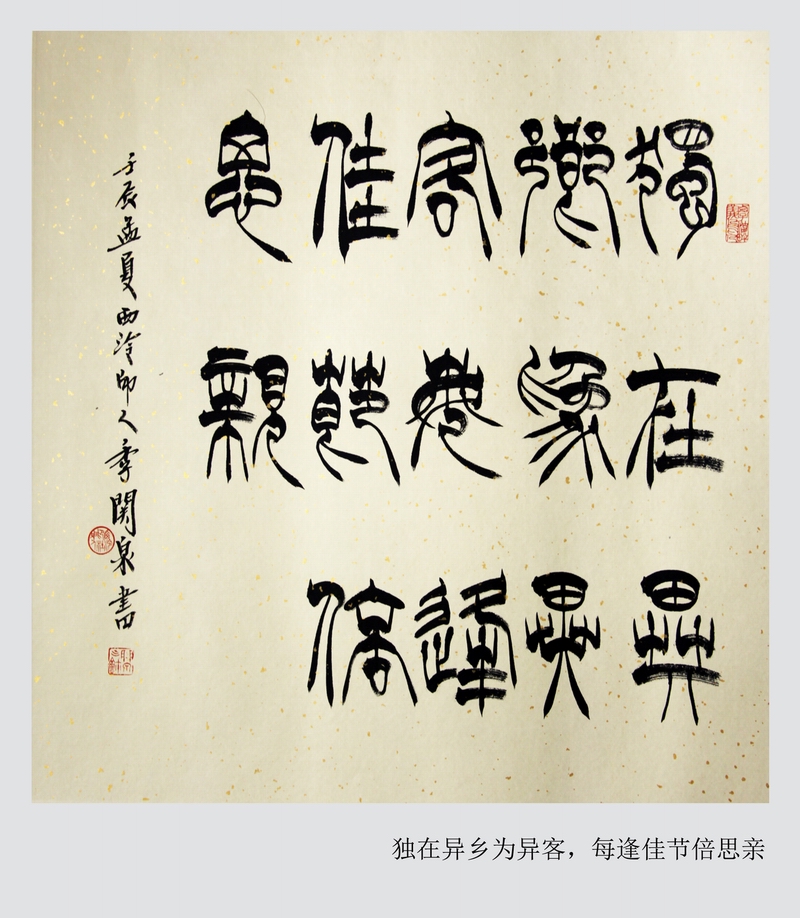 獨在異
鄉為異
客每逢
佳節倍
思親
壬辰孟夏西泠印人季関泉書
独在异乡为异客，每逢佳节倍思亲